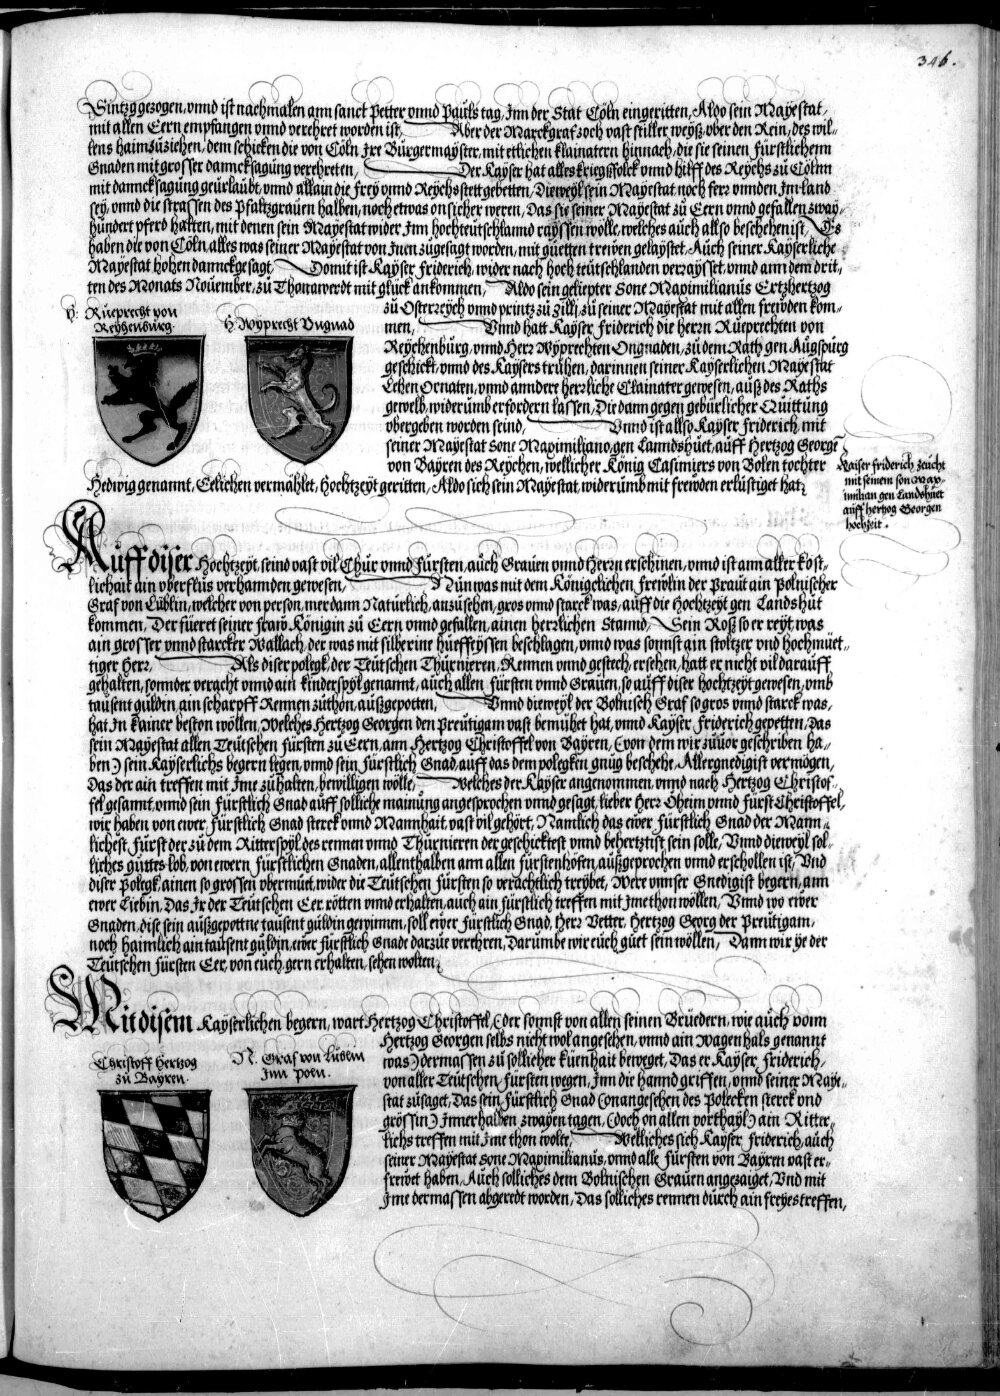 346.
Sintzg gezogen, vnnd ist nachmalen ann sanct Petter vnnd Pauls tag, Jnn der Stat Cöln eingeritten, Aldo sein Mayestat,
mit allen Eern empfangen vnnd verehret worden ist, Aber der Marckgraf zoch vast stiller weyß, vber den Rein, des wil-
lens haimzüziehen, dem schicken die von Cöln Jre Bürgermayster, mit etlichen klainatern hinnach, die sie seinen Fürstlichenn
Gnaden mit grosser dannckhsagung verehreten, Der Kayser hat alles kriegsfolck vnnd hilff des Reychs zu Cölnn
mit dannckhsagung geürlaubt, vnnd allain die Frey vnnd Reychsstett gebetten, Dieweyl sein Mayestat noch ferr vnnden Jm land
sey, vnnd die strassen des Pfaltzgrauen halben, noch etwas onsicher weren, Das sie seiner Mayestat zu Eern vnnd gefallen, zway-
hundert pferd hielten, mit denen sein Mayestat wider Jnn Hochteutschlannd rayssen wolle, welches auch allso beschehen ist, Es
haben die von Cöln, alles was seiner Mayestat von Jnen zügesagt worden, mit guetten trewen gelaystet, Auch seiner Kayserliche
Mayestat hohen danneck gesagt, Domit ist Kayser Friderich, wider nach hoch teütschlanden verraysset, vnnd ann dem drit-
ten des Monats Nouember, zu Thonawerdt mit glück ankommen, Aldo sein geliepter Sone Maximilianus Ertzhertzog
zu Osterreych vnnd printz zu Zilli, zu seiner Mayestat mit allen frewden kom-
men, Vnnd hatt Kayser Friderich die herrn Rüeprechten von
Reychenbürg, vnnd Herr Wyprechten Ongnaden, zu dem Rath gen Augspurg
geschickt, vnnd des Kaysers trühen, darinnen seiner Kayserlichen Mayestat
Lehen Ornaten, vnnd anndere herrliche Clainater gewesen, auß des Raths
gewelb, widerumb erfordern lassen, Die dann gegen gebürlicher Quittung
vbergeben worden seind, Vnnd ist allso Kayser Friderich, mit
seiner Mayestat Sone Maximiliano, gen Lanndshüet, auff Hertzog George
von Bayren des Reychen, wellicher König Casimiers von Bolen tochter
H: Rüeprecht von
Reyhenburg.
H. Wyprecht Vngnad
Hedwig genannt, Eelichen vermählet, Hochtzeyt geritten, Aldo sich sein Mayestat, widerumb mit frewden erlüstiget hat,
Kaiser friderich zeücht
mit seinem son Max-
imilian gen Landshüet
auff hertzog Georgen
hochzeit.
Auff diser Hochtzeyt, seind vast vil Chür vnnd Fürsten, auch Grauen vnnd Herrn erschinen, vnnd ist ann aller köst-
lichait ain vberflus verhannden gewesen, Nün was mit dem Königclichen frewlin der Praut ain Polnischer
Graf von Lüblin, welcher von person, mer dann Natürlich, anzüsehen, gros vnnd starck was, auff die Hochtzeyt gen Landshüt
kommen, Der füeret seiner fraw Königin zu Eern vnnd gefallen, ainen herrlichen Stannd, Sein Roß so er reyt, was
ain grosser vnnd starcker Wallach, der was mit silberine hüeffeyssen beschlagen, vnnd was sonnst ain stoltzer vnd hochmüet-
tiger herr, Als diser polegk, der Teütschen Thürnieren, Rennen vnnd gestech, ersehen, hatt er nicht vil darauff
gehalten, sonnder veracht vnnd ain kinderspyl genannt, auch allen Fürsten vnnd Grauen, so auff diser hochtzeyt gewesen, vmb
tausent guldin, ain scharpff Rennen züthon, außgepotten, Vnnd dieweyl der Bolnisch Graf so gros vnnd starck was,
hat Jn kainer beston wöllen, Welches Hertzog Georgen den Preütigam vast bemühet hat, vnnd Kayser Friderich gepetten, Das
sein Mayestat allen Teütschen Fürsten zu Eern, ann Hertzog Christoffel von Bayren, (von dem wir züuor geschriben ha-
ben) sein Kayserlichs begern legen, vnnd sein Fürstlich Gnad, auff das dem polegken gnüg beschehe, Allergnedigist vermögen,
Das der ain treffen mit Jme zühalten, bewilligen wölle, Welches der Kayser angenommen, vnnd nach Hertzog Christof-
fel gesannt, vnnd sein Fürstlich Gnad auff solliche mainung angesprochen vnnd gesagt, lieber Herr Oheim vnnd Fürst Christoffel,
wir haben von ewer Fürstlich Gnad sterck vnnd Mannhait, vast vil gehört, Namlich das ewer Fürstlich Gnad der Mann-
lichest Fürst, der zu dem Ritterspyl, des rennen vnnd Thürnieren der geschicktest vnnd behertztist sein solle, Vnnd dieweyl sol-
liches guttes lob, von ewern Fürstlichen Gnaden, allenthalben ann allen Fürstenhöfen, außgeprochen vnnd erschollen ist, Vnd
diser Polegk, ainen so grossen vbermüet, wider die Teütschen Fürsten so verächtlich treybet, Were vnnser Gnedigist begern, ann
ewer Liebin, Das Jr der Teütschen Eer rötten vnnd erhalten, auch ain fürstlich treffen mit Jme thon wöllen, Vnnd wo ewer
Gnaden, dise sein außgepottne tausent guldin gewinnen, soll ewer Fürstlich Gnad, Herr Vetter, Hertzog Georg der Preütigam,
noch haimlich ain tausent guldin, ewer Fürstlich Gnade darzue verehren, Darumbe wir euch guet sein wöllen, Dann wir ye der
Teütschen Fürsten Eer, von euch, gern erhalten, sehen wolten,
Mit disem Kayserlichen begern, wart Hertzog Christoffel, (der sonnst von allen seinen Brüedern, wie auch vonn
Hertzog Georgen selbs nicht wol angesehen, vnnd ain Wagenhals genannt
was) dermassen zu sollicher küenhait beweget, Das er Kayser Friderich,
von aller Teütschen Fürsten wegen, Jnn die hannd griffen, vnnd seiner Maye-
stat züsaget, Das sein Fürstlich Gnad (onangesehen des Polecken sterck vnd
grössin) Jnnerhalben zwayen tagen, (doch on allen vorthayl) ain Ritter-
lichs treffen mit Jme thon wolte, Welliches sich Kayser Friderich, auch
seiner Mayestat Sone Maximilianus, vnnd alle Fürsten von Bayren vast er-
frewet haben, Auch solliches dem Bolnischen Grauen angezaiget, Vnd mit
Jme dermassen abgeredt worden, Das solliches rennen dürch ain freyes treffen,
Christoff Hertzog
zu Bayren.
N. Graf von Lublin
Jnn Poln.